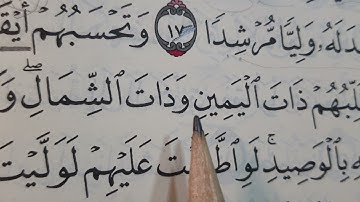 دَلَهُۥ وَلِيًّا مُّرۡشِدًا ١٧ وَتَحۡسَبُهُمۡ
لِّبُهُمۡ ذَاتَ ٱلۡيَمِينِ وَذَاتَ ٱلشِّمَالِۖ
بِٱلۡوَصِيدِۚ لَوِ عَلَيۡهِمۡ لَوَلَّيۡتَ